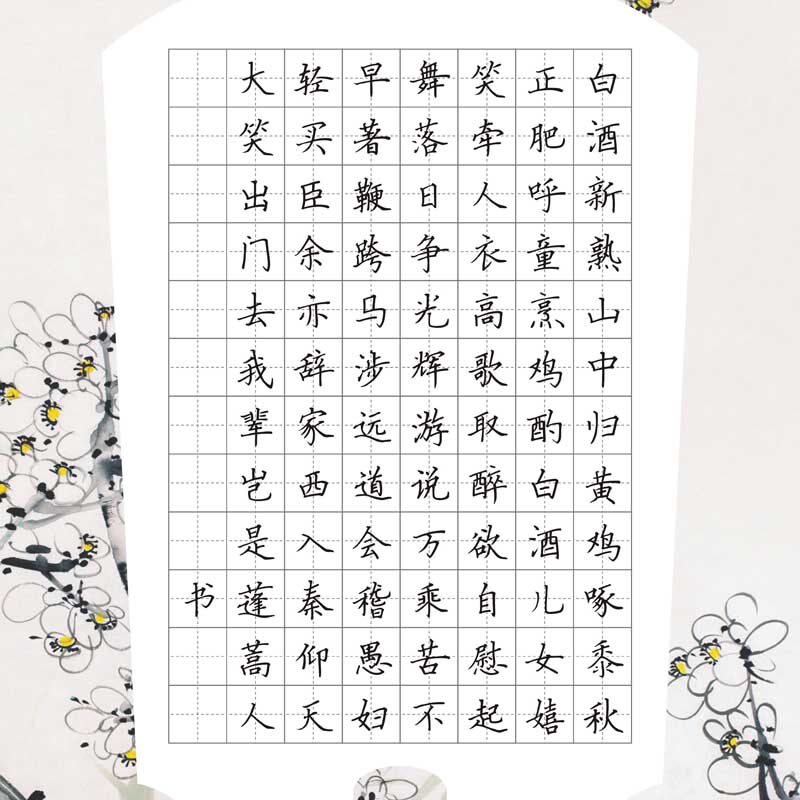 白酒新熟山中归黄鸡啄黍秋
正肥呼童烹鸡酌白酒儿女嬉
笑牵人衣高歌取醉欲自慰起
舞落日争光辉游说万乘苦不
早著鞭跨马涉远道会稽愚妇
轻买臣余亦辞家西入秦仰天
大笑出门去我辈岂是蓬蒿人
书